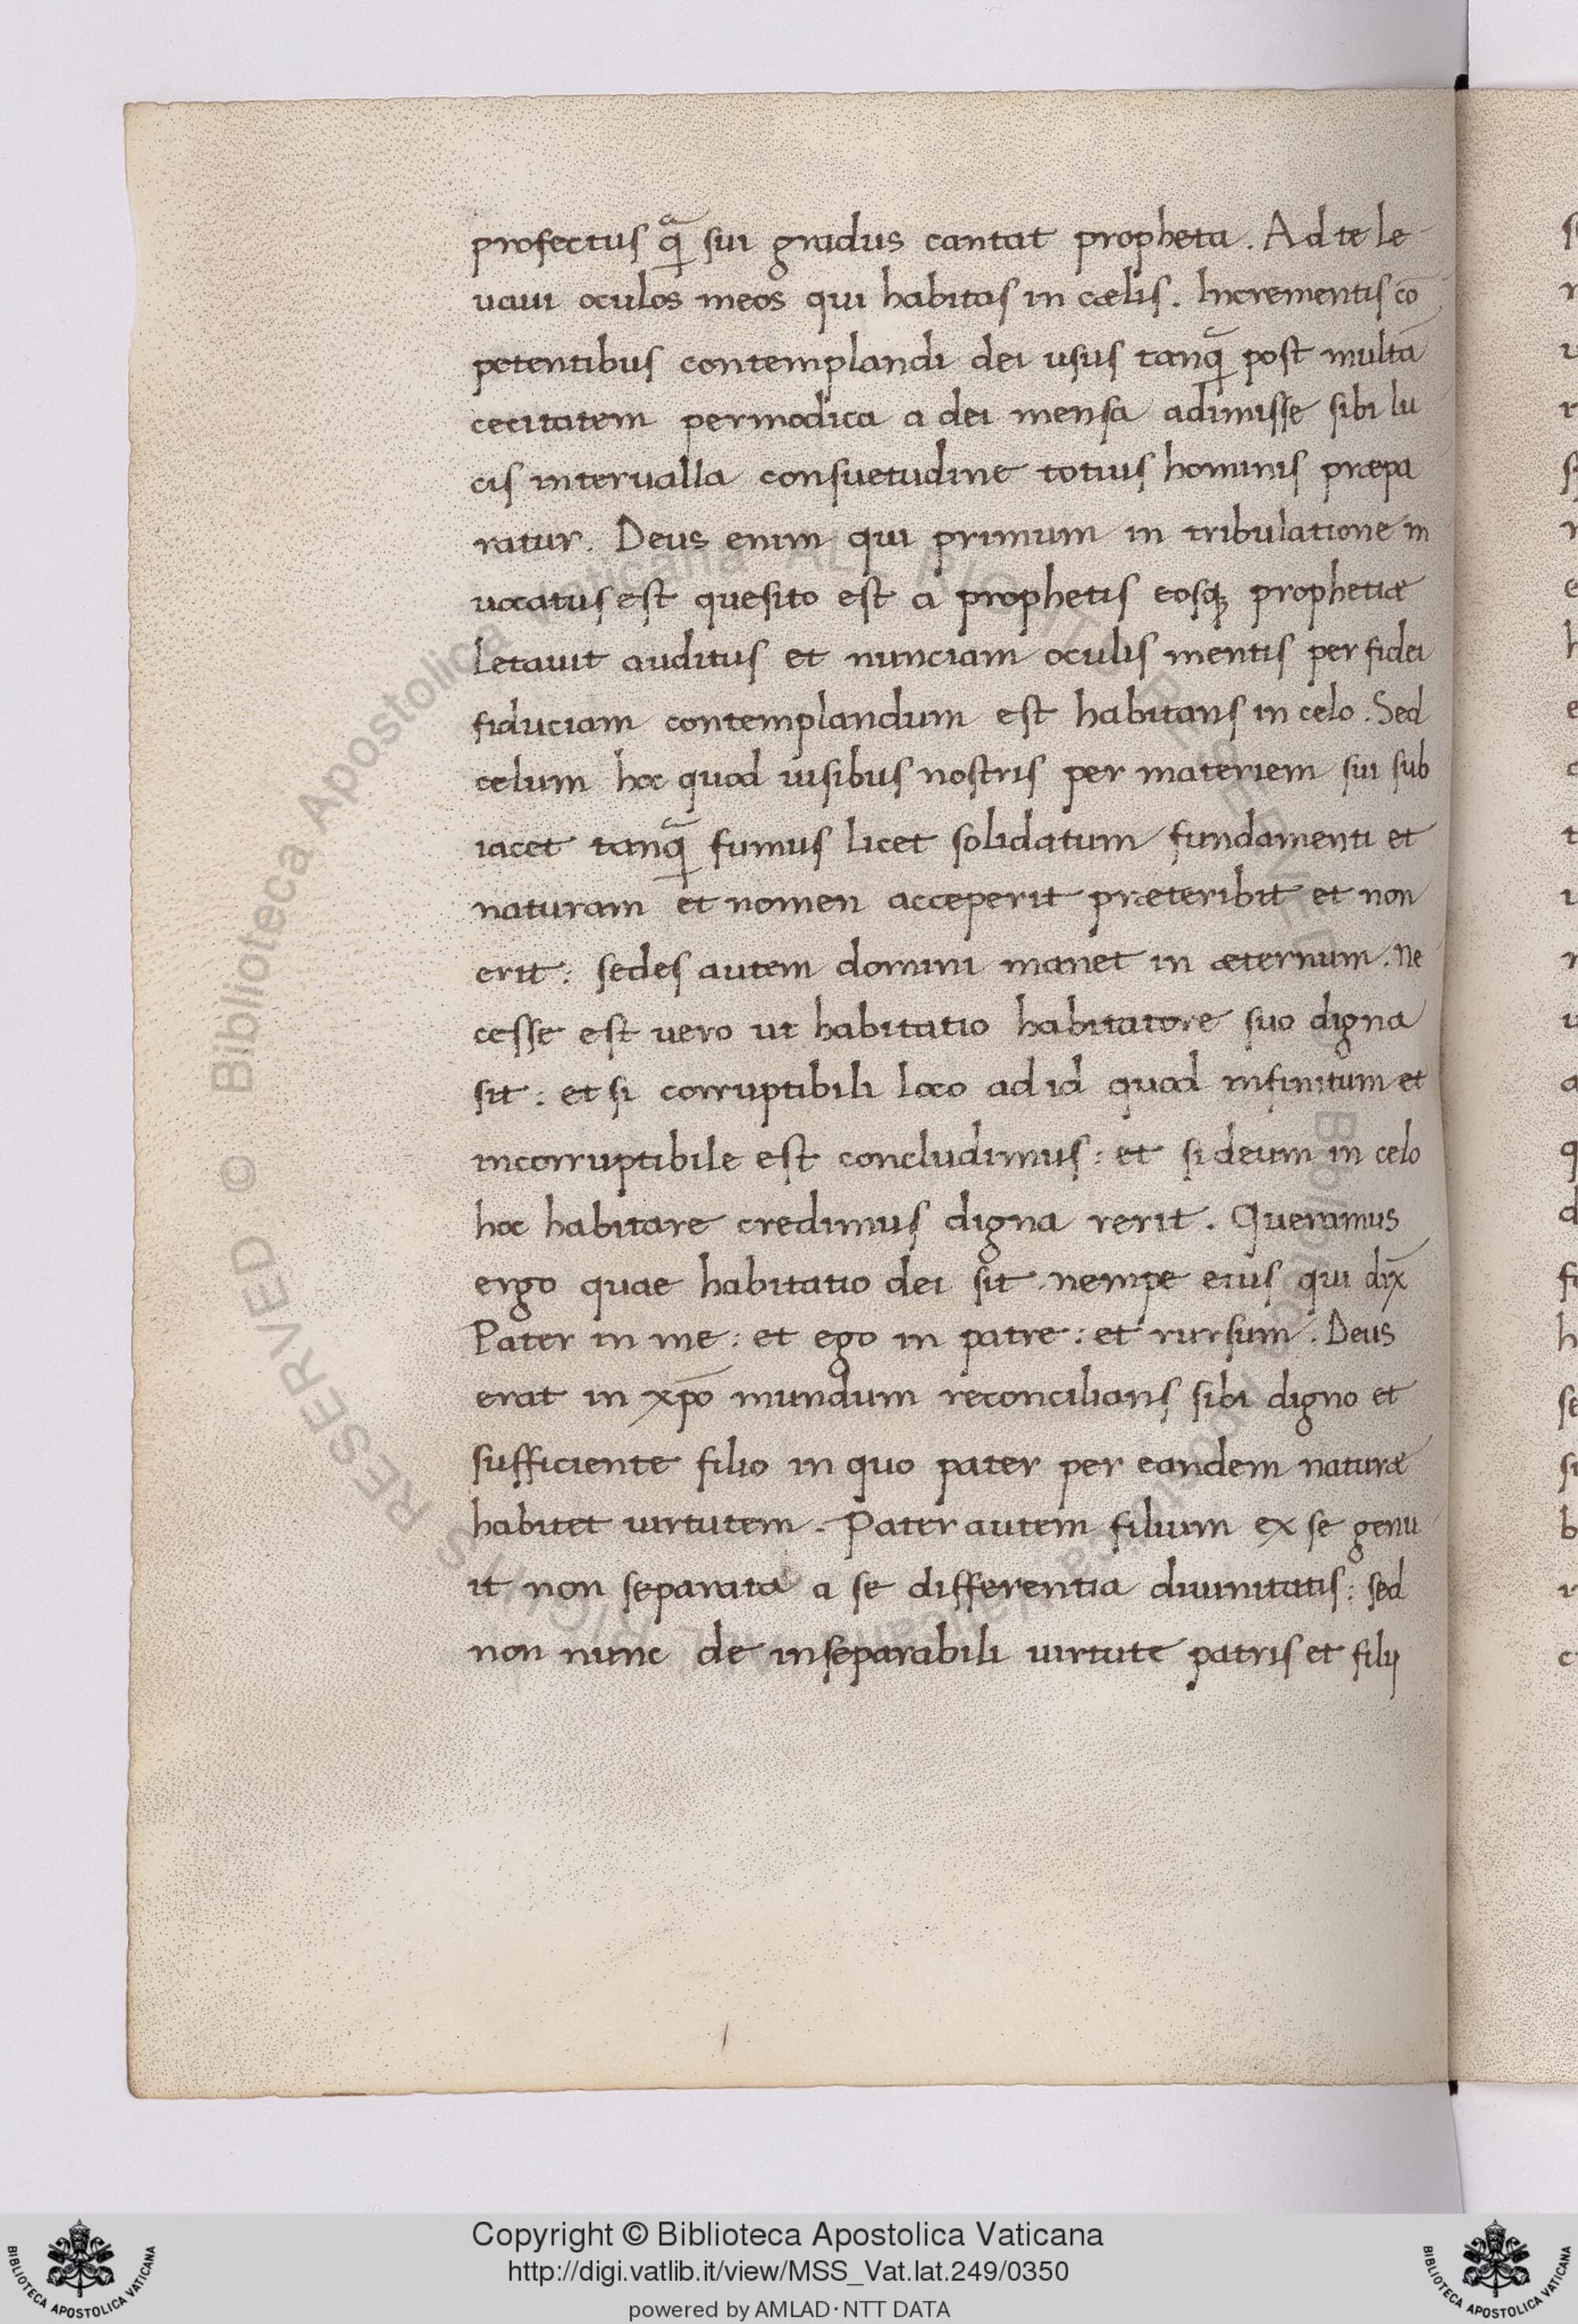 profectus qᷓ sui gradus cantat propheta. Ad te le
uaui oculos meos qui habitas in cælis. Incrementis cō
petentibus contemplandi dei usus tanqᷓ post multā
cecitatem permodica a dei mensa adimisse sibi lu
cis interualla consuetudine totius hominis præpa
ratur. Deus enim qui primum in tribulatione in
uocatus est quesito est a prophetis eosqꝫ prophetiæ
letauit auditus et nunciam oculis mentis per fidei
fiduciam contemplandum est habitans in celo. Sed
celum hoc quod uisibus nostris per materiem sui sub
iacet tanqᷓ fumus licet solidatum fundamenti et
naturam et nomen acceperit præteribit et non
erit: sedes autem domini manet in æternum. Ne
cesse est vero ut habitatio habitatore suo digna
sit: et si corruptibili loco ad id quod infinitum et
incorruptibile est concludimus: et si deum in celo
hoc habitare credimus digna rerit. Queramus
ergo quae habitatio dei sit nempe eius qui dix̄
Pater in me: et ego in patre: et rursum. Deus
erat in xp̄o mundum reconcilians sibi digno et
sufficiente filio in quo pater per eandem naturæ
habitet uirtutem. Pater autem filium ex se genu
it non separata a se differentia diuinitatis: sed
non nunc de inseparabili uirtute patris et filij
© Biblioteca Apostolica Vaticana ALL RIGHTS RESERVED
Copyright © Biblioteca Apostolica Vaticana
http://digi.vatlib.it/view/MSS_Vat.lat.249/0350
powered by AMLAD·NTT DATA
BIBLIOTECA APOSTOLICA VATICANA
BIBLIOTECA APOSTOLICA VATICANA